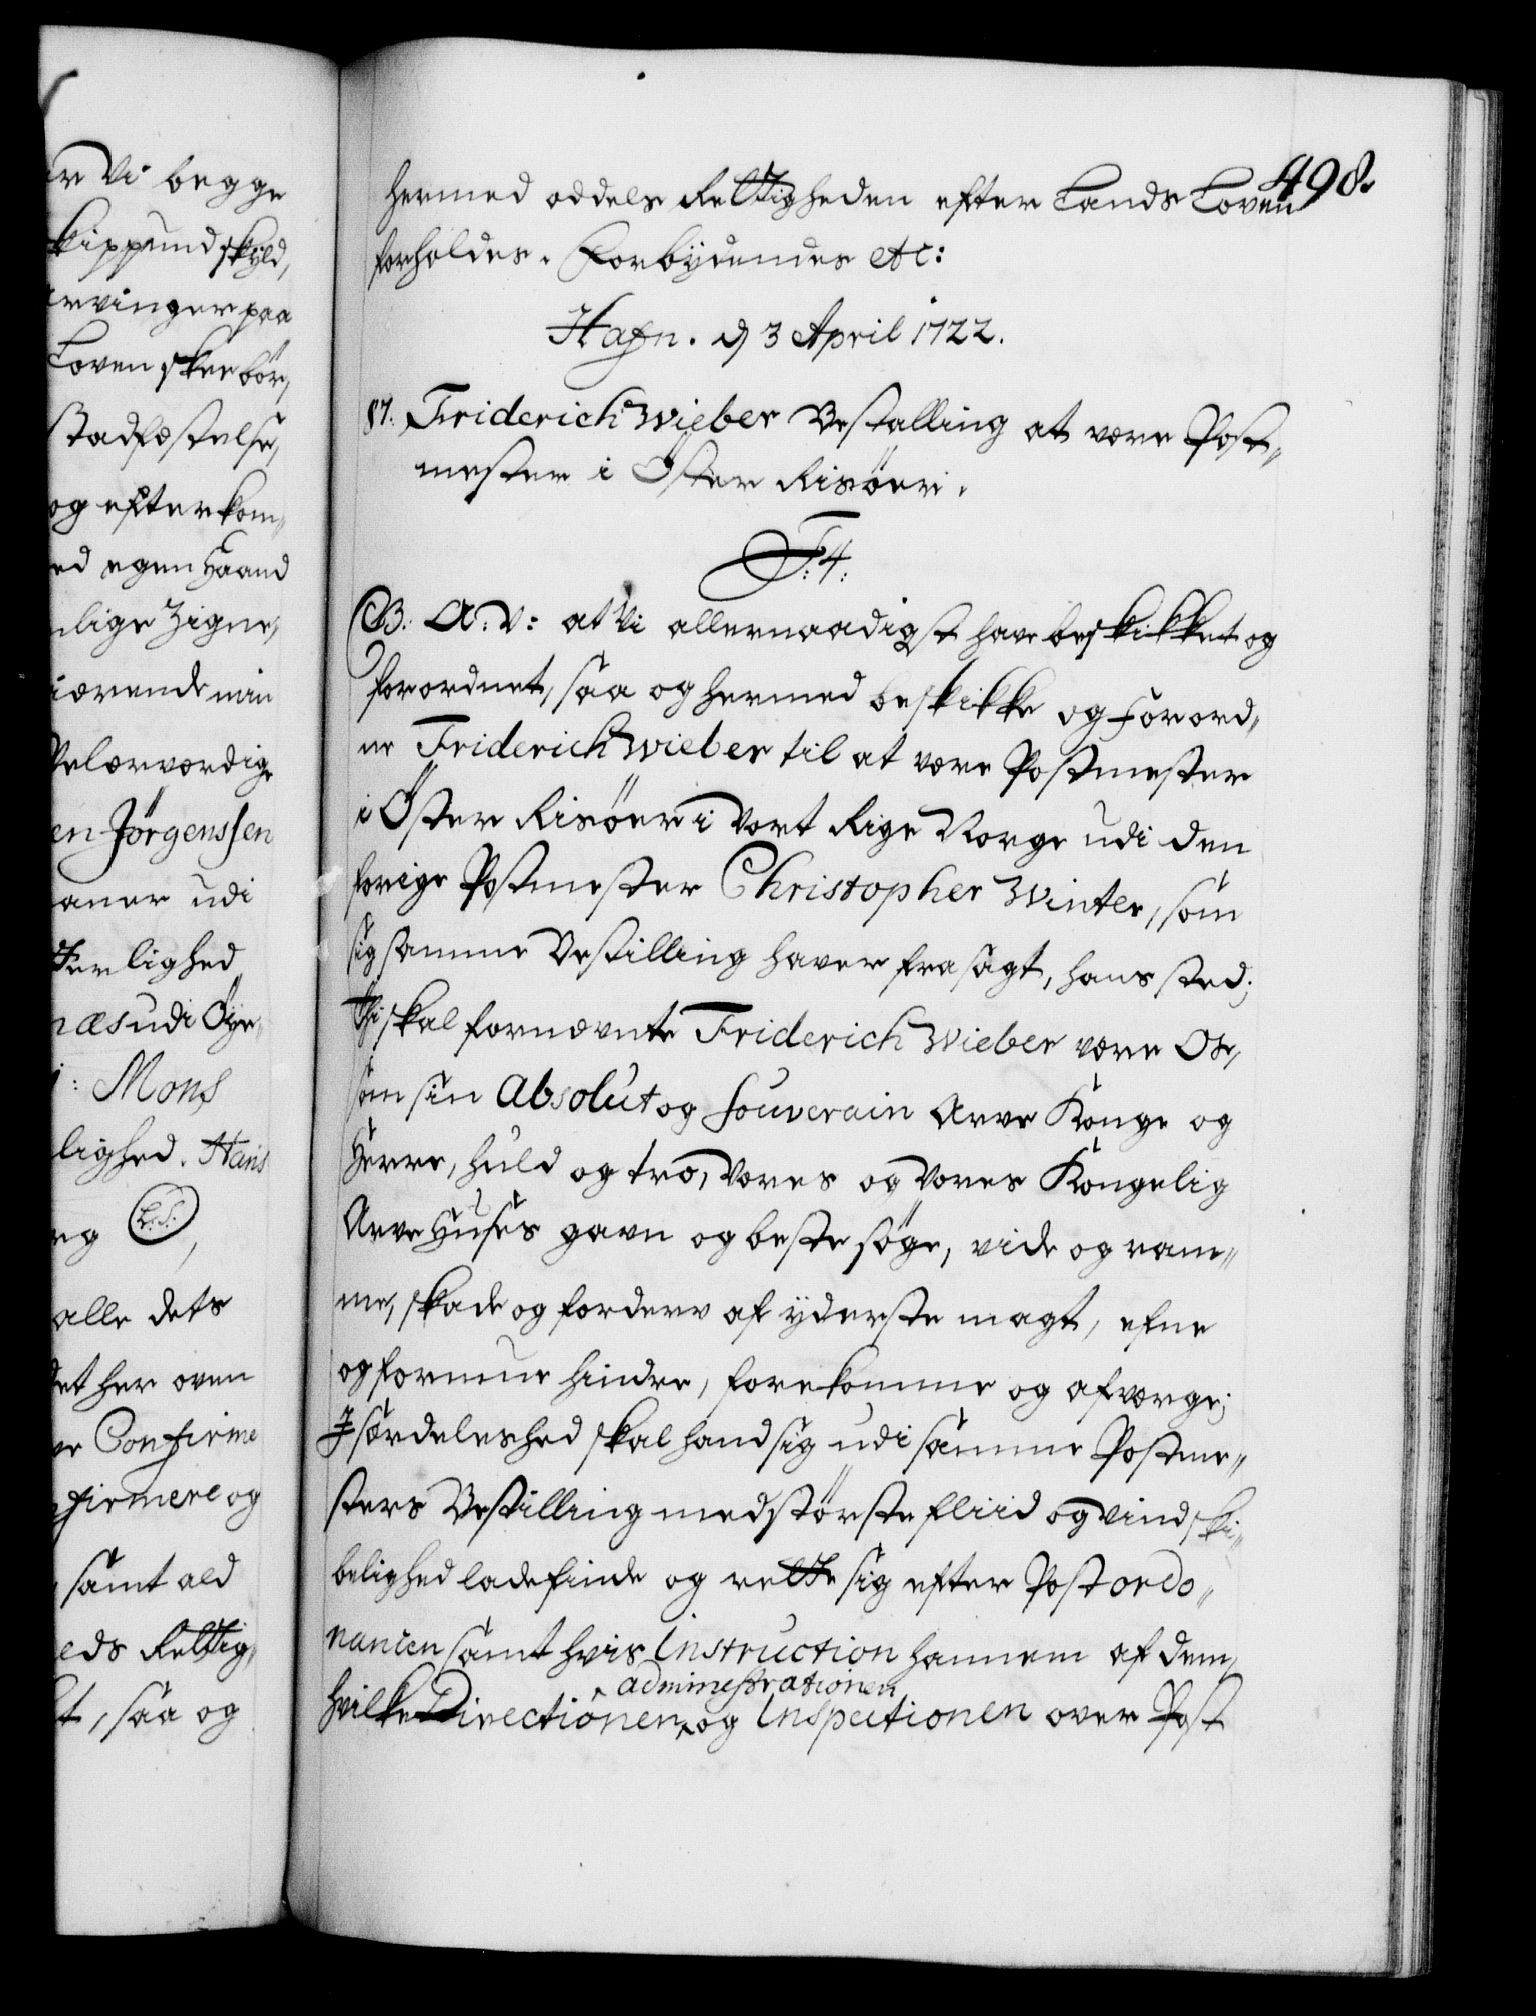 ar Vi begge
kippund skyld,
arvinger paa
Loven skee bør,
Stadfæstelse,
og efterkom„
ed egen Haand
lige Zigne,
ærende min
Velærværdige
en Jörgenssen
aner udi
Herlighed
næs udi Öye„
: Mons
lighed. Hans
rg L.S.,
alle dets
det her oven
ve Confirme
firmere og
samt ald
eds Rettig„
t, saa og
498.
hermed oddels Rettigheden efter Lands Loven
forholdes. Forbydendes etc:
Hafn. d 3 April 1722.
87. Friderich Wieber Bestalling at være Post„
mester i Öster Risöer.
F:4:
G.B: A:V: at Vi allernaadigst have beskikket og
forordnet, saa og hermed beskikke og forord„
ne Friderich Wieber til at være Postmester
i Öster Risöer i Vort Rige Norge udi den
forige Postmester Christopher Winter, som
sig samme Bestilling haver frasagt, hans sted;
Thi skal fornævnte Friderich Wieber være Os,
som sin Absolut og Souverain Arve Konge og
Herre, huld og tro, Vores og Vores Kongelig
Arve Huses gavn og beste søge, vide og ram„
me, skade og forderv af yderste magt, efne
og formue hindre, forekomme og afværge;
Isærdeleshed skal hand sig udi samme Postme„
sters Bestilling med største fliid og vindski„
belighed lade finde og rette sig efter Post ordo„
nancen samt hvis Instruction hannem af dem,
administrationen
hvilke Directionen og Inspectionen over Post